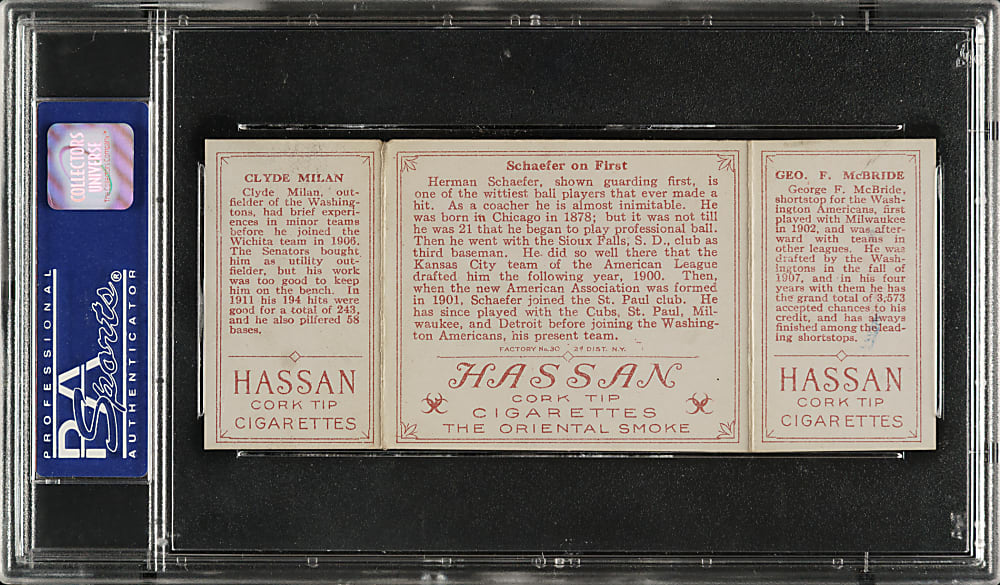 COLLECTORS
UNIVERSE
PROFESSIONAL
PSA
Sports®
AUTHENTICATOR
CLYDE MILAN
Clyde Milan, out-
fielder of the Washing-
tons, had brief experi-
ences in minor teams
before he joined the
Wichita team in 1906.
The Senators bought
him as utility out-
fielder, but his work
was too good to keep
him on the bench. In
1911 his 194 hits were
good for a total of 243,
and he also pilfered 58
bases.
HASSAN
CORK TIP
CIGARETTES
Schaefer on First
Herman Schaefer, shown guarding first, is
one of the wittiest ball players that ever made a
hit. As a coacher he is almost inimitable. He
was born in Chicago in 1878; but it was not till
he was 21 that he began to play professional ball.
Then he went with the Sioux Falls, S. D., club as
third baseman. He did so well there that the
Kansas City team of the American League
drafted him the following year, 1900. Then,
when the new American Association was formed
in 1901, Schaefer joined the St. Paul club. He
has since played with the Cubs, St. Paul, Mil-
waukee, and Detroit before joining the Washing-
ton Americans, his present team.
FACTORY No. 30 2d DIST. N.Y.
HASSAN
CORK TIP
CIGARETTES
THE ORIENTAL SMOKE
GEO. F. McBRIDE
George F. McBride,
shortstop for the Wash-
ington Americans, first
played with Milwaukee
in 1902, and was after-
ward with teams in
other leagues. He was
drafted by the Wash-
ingtons in the fall of
1907, and in his four
years with them he has
the grand total of 3,573
accepted chances to his
credit, and has always
finished among the lead-
ing shortstops.
HASSAN
CORK TIP
CIGARETTES